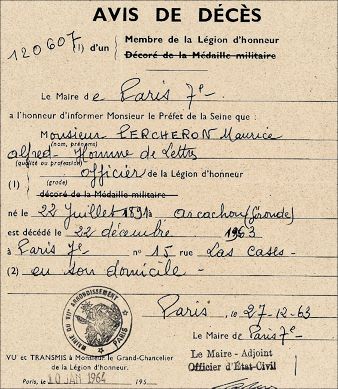 AVIS DE DÉCÈS
120607 (1) d'un Membre de la Légion d'honneur
Décoré de la Médaille militaire
Le Maire de Paris 7e
a l'honneur d'informer Monsieur le Préfet de la Seine que :
Monsieur PERCHERON Maurice
(nom, prénoms)
Alfred - Homme de Lettres
(qualité ou profession)
(1) officier de la Légion d'honneur
(grade)
décoré de la Médaille militaire
né le 22 Juillet 1891 à Arcachon (Gironde)
est décédé le 22 décembre 1963
à Paris 7e n° 15 rue Las Cases -
(2) en son domicile -
MAIRIE DU VIIe ARRONDISSEMENT
PARIS
Paris, le 27-12-63
Le Maire de Paris 7e -
VU et TRANSMIS à Monsieur le Grand-Chancelier
de la Légion d'honneur.
Le Maire - Adjoint
Officier d'État-Civil
Paris, le 10 JAN 1964 195